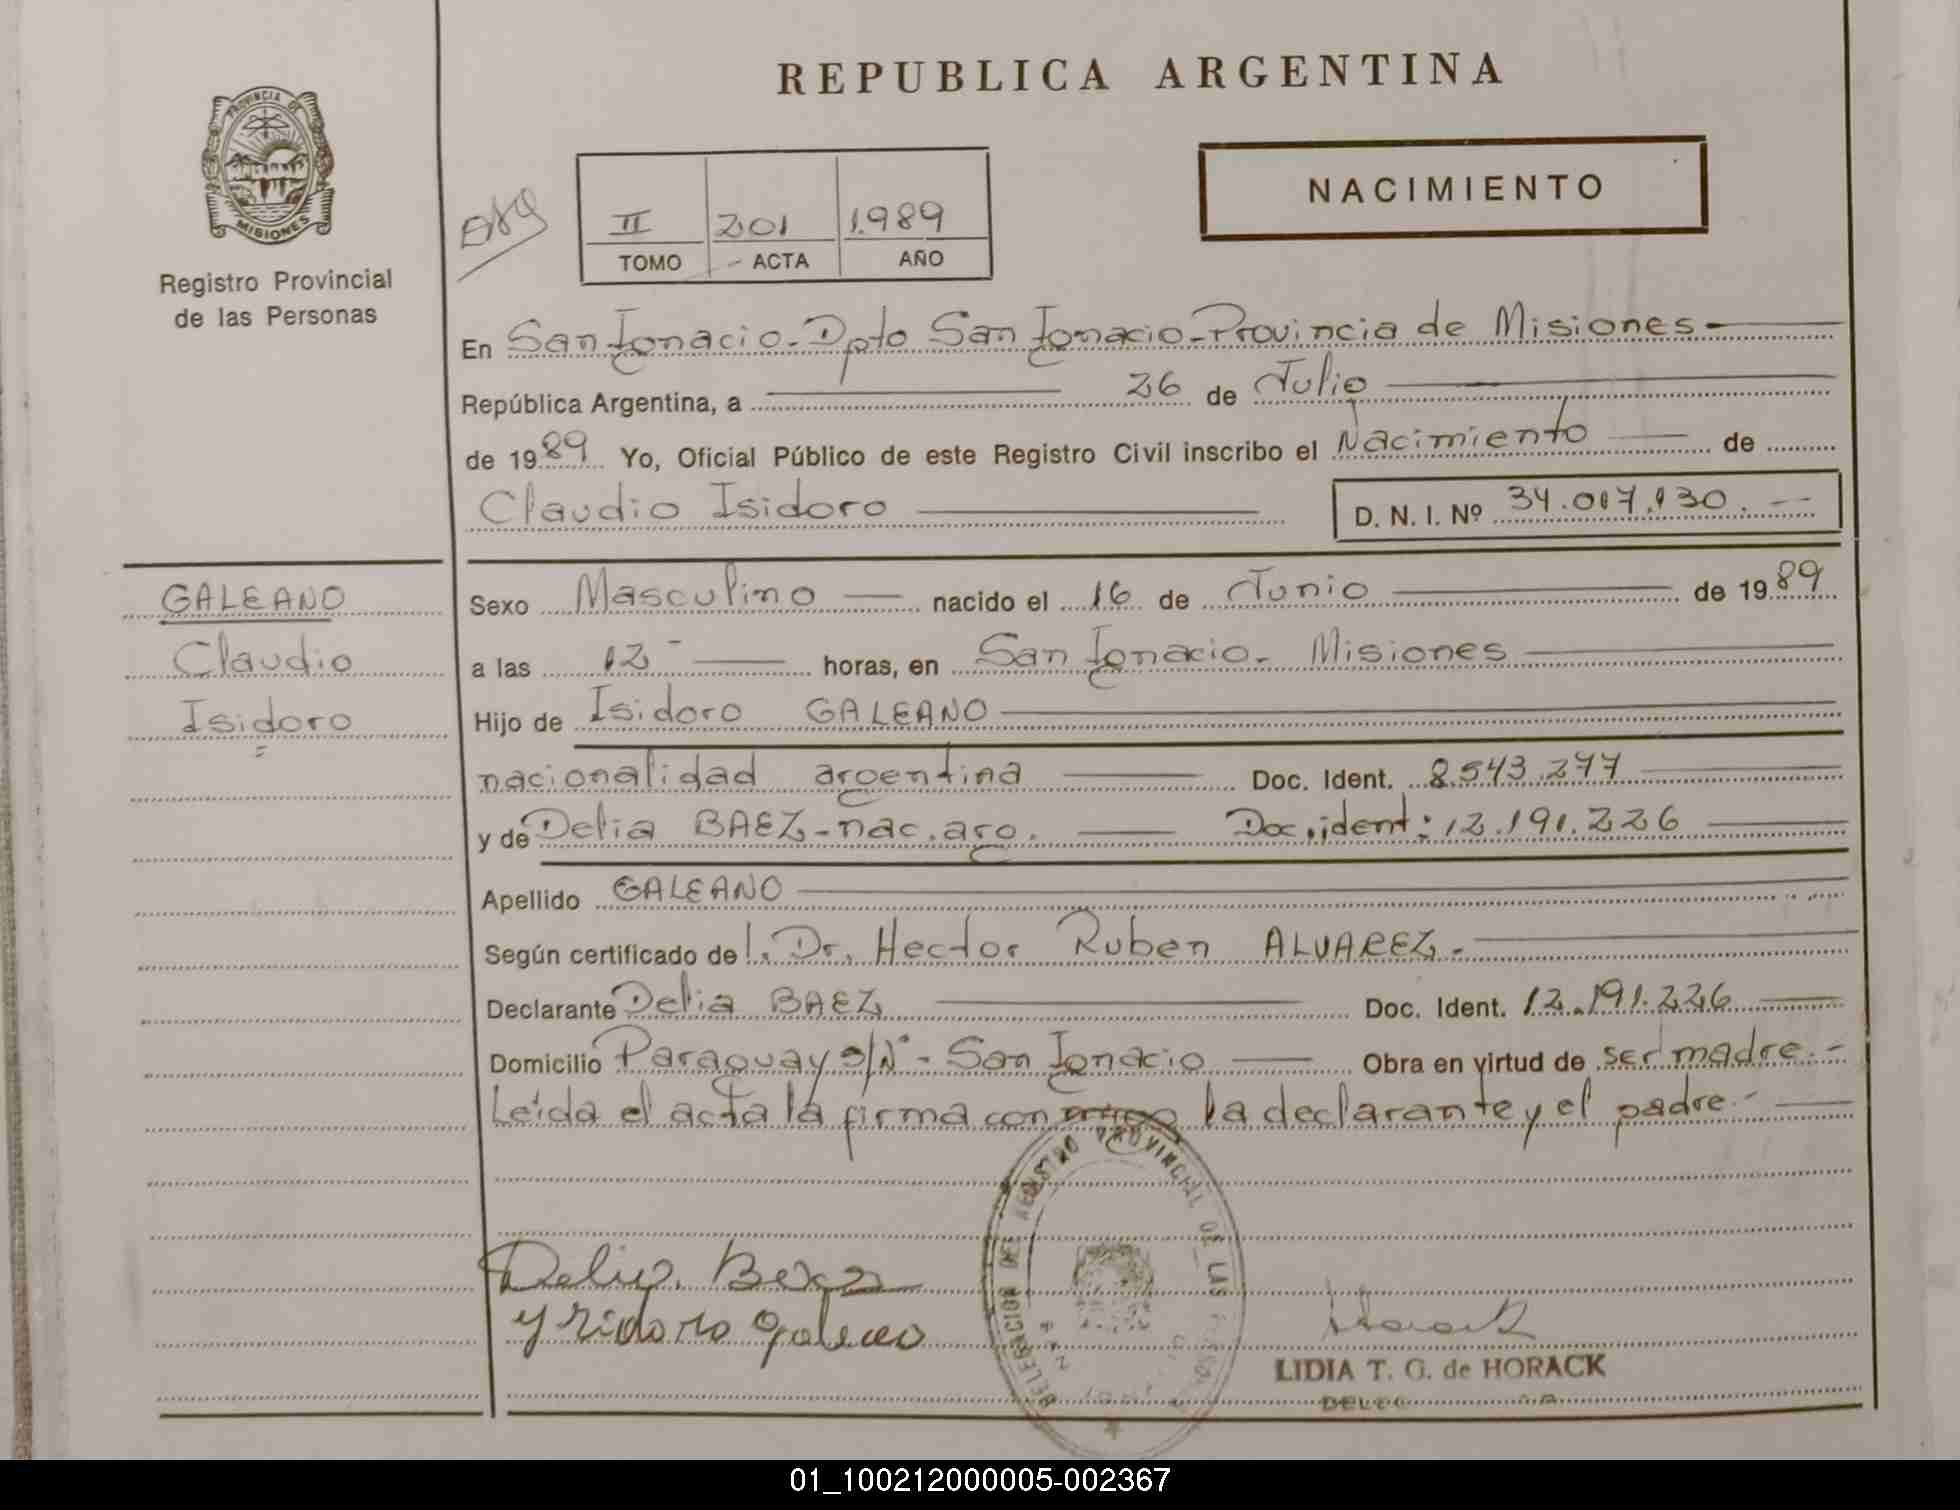 REPUBLICA ARGENTINA
PROVINCIA DE
MISIONES
Registro Provincial
de las Personas
NACIMIENTO
II 201 1.989
TOMO - ACTA AÑO
En San Ignacio - Dpto San Ignacio - Provincia de Misiones -
República Argentina, a 26 de Julio
de 1989 Yo, Oficial Público de este Registro Civil inscribo el Nacimiento de
Claudio Isidoro D. N. I. Nº 34.017.130. -
GALEANO
Claudio
Isidoro
Sexo Masculino nacido el 16 de Junio de 1989
a las 12 - horas, en San Ignacio - Misiones
Hijo de Isidoro GALEANO
nacionalidad argentina Doc. Ident. 8.543.277
y de Delia BAEZ - nac. arg. Doc. ident: 12.191.226
Apellido GALEANO
Según certificado del. Dr. Hector Ruben ALVAREZ. -
Declarante Delia BAEZ Doc. Ident. 12.191.226
Domicilio Paraguay s/Nº - San Ignacio Obra en virtud de ser madre. -
Leida el acta la firma con la declarante y el padre. -
DELEGACION DEL REGISTRO PROVINCIAL DE LAS
Delia Baez
y Isidoro Galeano
Horack
LIDIA T. G. de HORACK
01_100212000005-002367